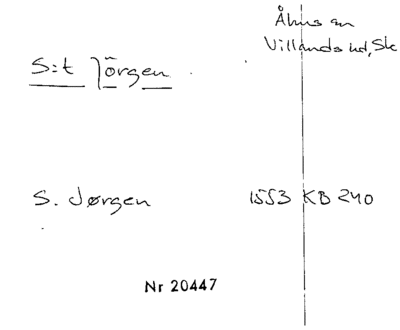 Åhus sn
Villands hd, Sk
S:t Jörgen
S. Jørgen 1553 KB 240
Nr 20447